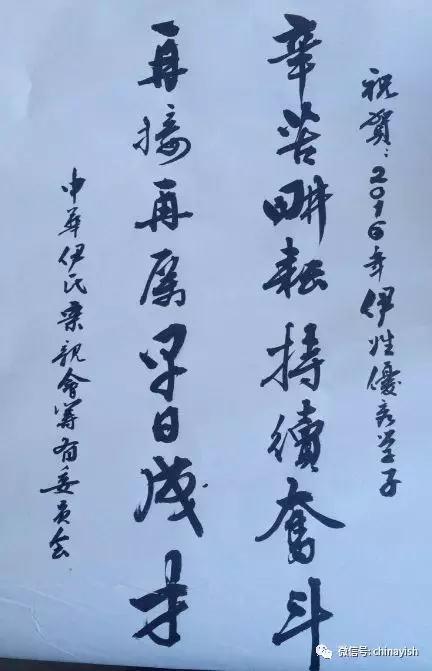 祝賀：2016年伊姓優秀学子
辛苦畊耘持續奮斗
再接再厲早日成才
中華伊氏宗親會籌備委员会
微信号: chinayish